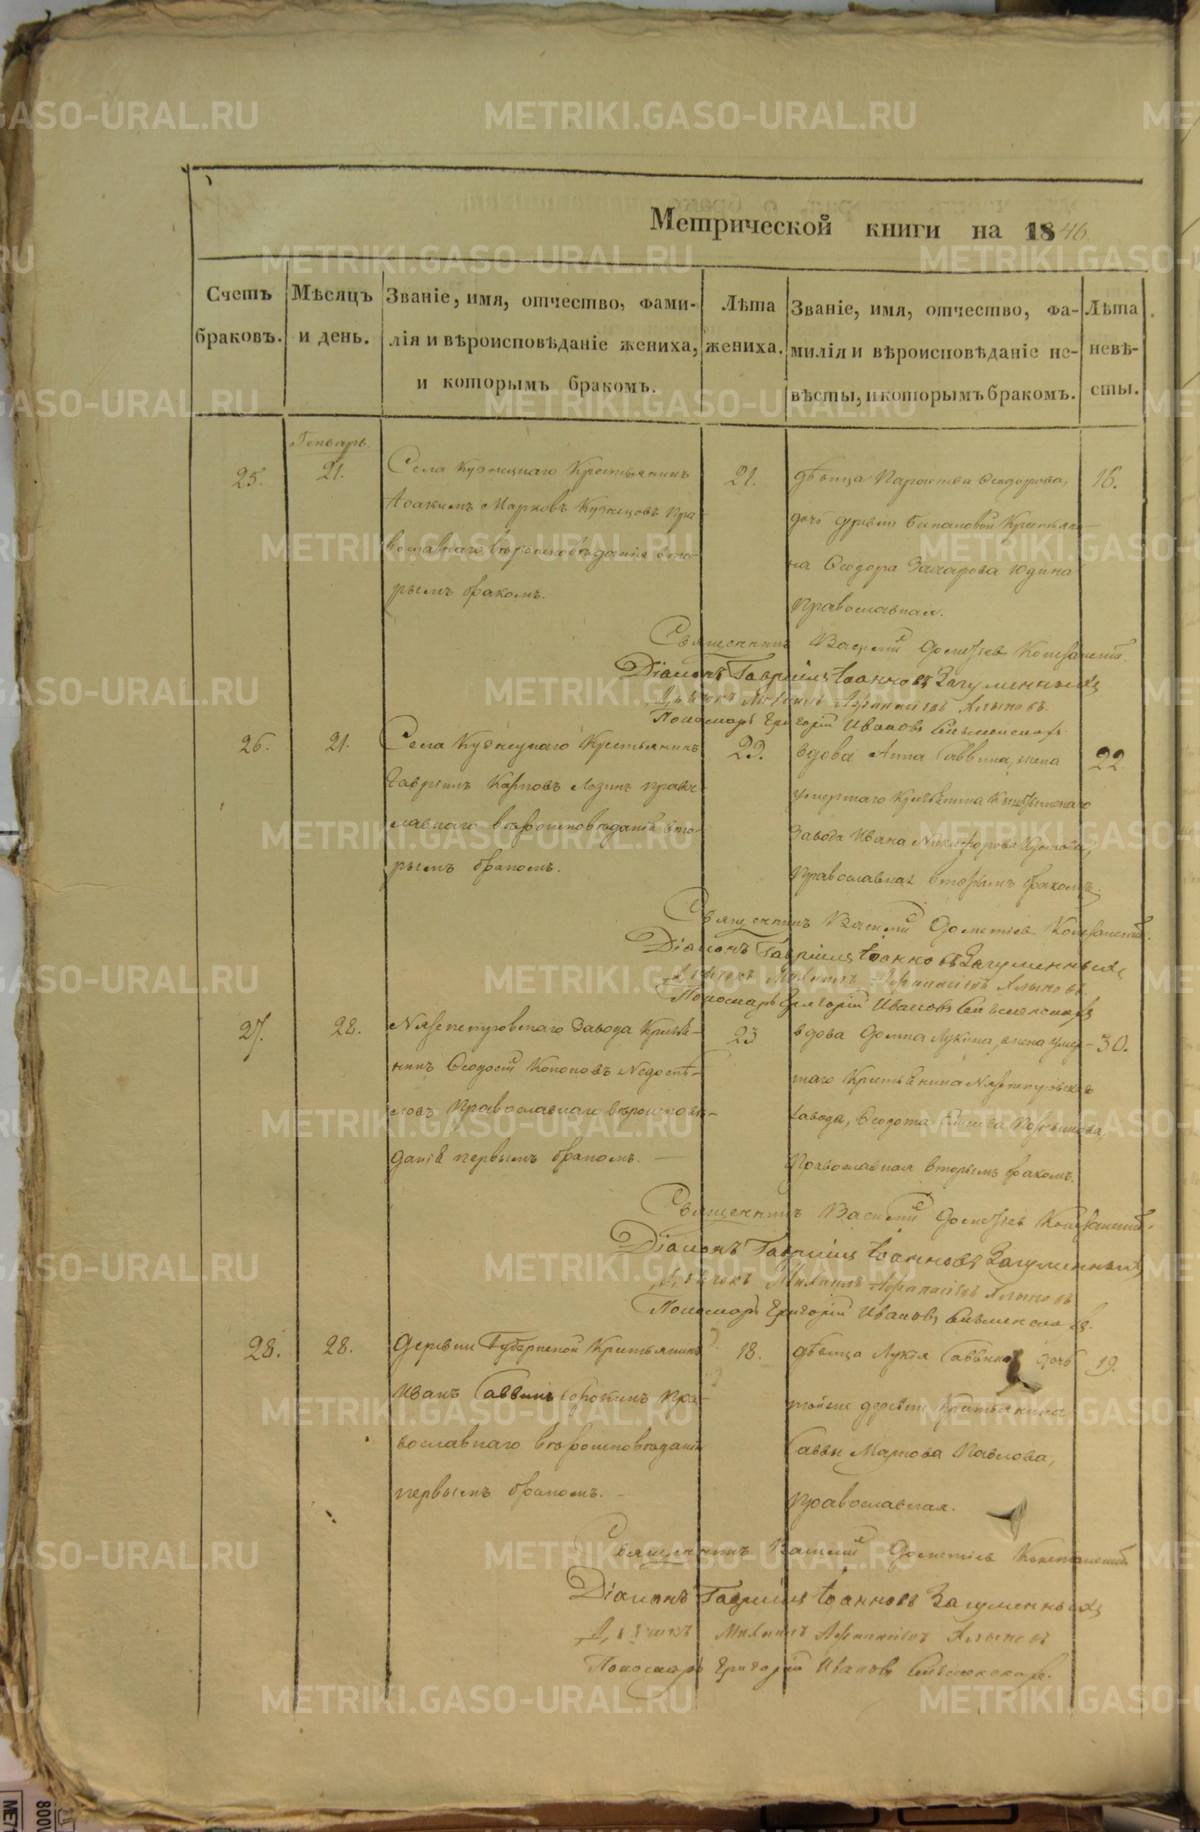 Метрической книги на 1846
Счетъ браковъ.
Мѣсяцъ и день.
Званіе, имя, отчество, фами-
лія и вѣроисповѣданіе жениха,
и которымъ бракомъ.
Лѣта жениха.
Званіе, имя, отчество, фа-
милія и вѣроисповѣданіе не-
вѣсты, и которымъ бракомъ.
Лѣта невѣ-
сты.
Генварь
25.
21.
Села Кузнецкаго Крестьянинъ
Іоакимъ Марковъ Кузнецовъ Пра-
вославнаго вѣроисповѣданія вто-
рымъ бракомъ.
21.
дѣвица Параскева Ѳеодорова,
дочь деревни Крестьяни-
на Ѳеодора Захарова Юдина
Православная.
18.
Священникъ Василій
Діаконъ Гавріилъ Іоанновъ Загуменныхъ
Дьячекъ Михаилъ Афанасіевъ
Пономарь Григорій Ивановъ
26.
21.
Села Кузнецкаго Крестьянинъ
Гавріилъ Карповъ правос-
лавнаго вѣроисповѣданія вто-
рымъ бракомъ.
29.
вдова Анна Саввина, жена
умершаго Кыштымскаго
завода Ивана Никифорова
Православная вторымъ бракомъ.
22
Священникъ Василій
Діаконъ Гавріилъ Іоанновъ Загуменныхъ
Дьячекъ Михаилъ Афанасіевъ
Пономарь Григорій Ивановъ
27.
28.
Нязепетровскаго Завода Кресть-
нинъ Ѳеодосій Кононовъ Недоспѣ-
ловъ Православнаго вѣроисповѣ-
данія первымъ бракомъ.
23
вдова Домна Лукина, жена умер-
шаго Крестьянина Нязепетровскаго
завода, Ѳеодота
Православная вторымъ бракомъ.
30.
Священникъ Василій
Діаконъ Гавріилъ Іоанновъ Загуменныхъ
Дьячекъ Михаилъ Афанасіевъ
Пономарь Григорій Ивановъ
28.
28.
Деревни Губернской Крестьянинъ
Иванъ Саввинъ Сорокинъ Пра-
вославнаго вѣроисповѣданія
первымъ бракомъ.
18.
дѣвица Лукія Саввина дочь
тойже деревни Крестьянина
Саввы Маркова Павлова,
Православная.
19.
Священникъ Василій
Діаконъ Гавріилъ Іоанновъ Загуменныхъ
Дьячекъ Михаилъ Афанасіевъ
Пономарь Григорій Ивановъ
METRIKI.GASO-URAL.RU